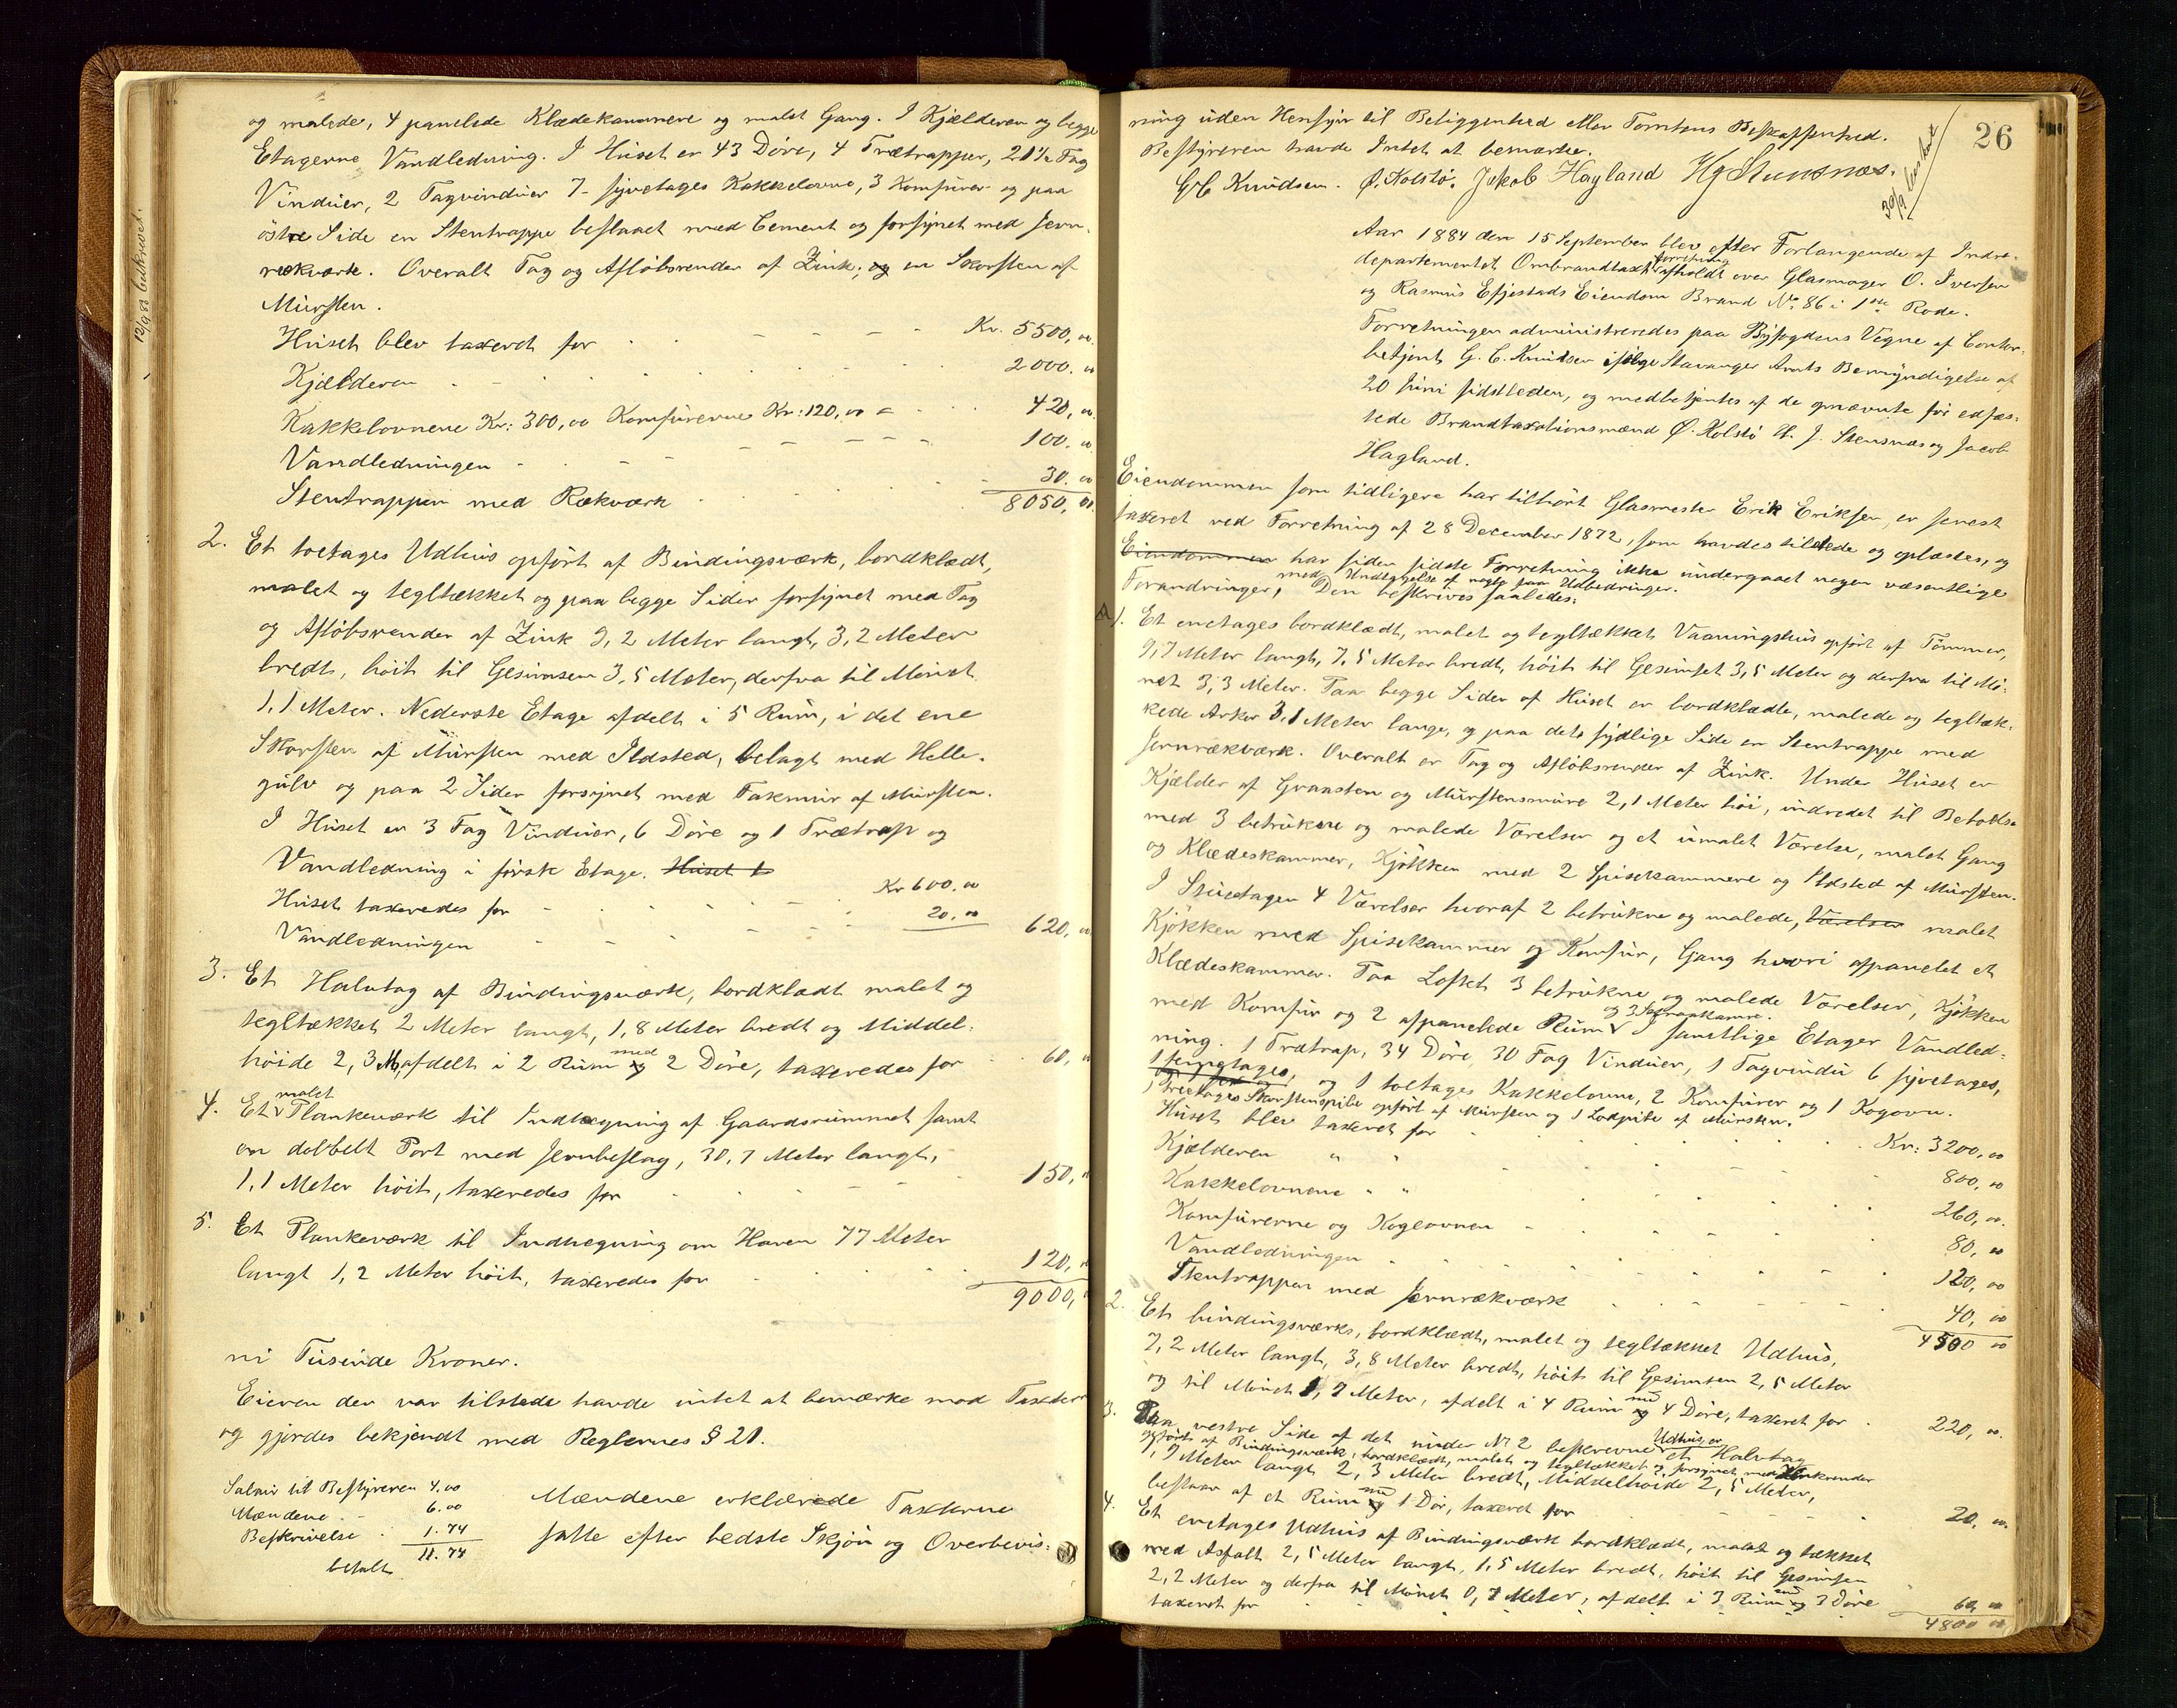 og malede, 4 panelede Klædekammere og malet Gang. I Kjælderen og begge
Etagerne Vandledning. I Huset er 43 Døre, 4 Trætrapper, 21½ Fag
Vinduer, 2 Tagvinduer 7 - syvetages Kakkelovne, 3 Komfurer og paa
østre Side en Stentrappe beslaaet med Cement og forsynet med Jern-
rækværk. Overalt Tag og Afløbsrender af Zink, og en Skorsten af
Mursten.
Huset blev taxeret for Kr. 5500,00.
Kjælderen 2000.00
Kakkelovnene Kr: 300,00 Komfurerne Kr: 120,00 = 420,00.
Vandledningen 100.00
Stentrappen med Rækværk 30.00
8050,00.
2. Et toetages Udhus opført af Bindingsværk, bordklædt,
malet og tegltækket og paa begge Sider forsynet med Tag
og Afløbsrender af Zink 9,2 Meter langt, 3,2 Meter
bredt, høit til Gesimsen 3,5 Meter, derfra til Mønet
1,1 Meter. Nederste Etage afdelt i 5 Rum, i det ene
Skorsten af Mursten med Ildsted, belagt med Helle-
gulv og paa 2 Sider forsynet med Fakmur af Mursten.
I Huset er 3 Fag Vinduer, 6 Døre og 1 Trætrap og
Vandledning i første Etage. Huset b
Huset taxeredes for Kr 600.00
Vandledningen 20.00 620,00
3. Et Halvtag af Bindingsværk, bordklædt malet og
tegltækket 2 Meter langt, 1,8 Meter bredt og Middel-
høide 2,3 M, afdelt i 2 Rum og med 2 Døre, taxeredes for 60,00
4. Et malet Plankeværk til Indhegning af Gaardsrummet samt
en dobbelt Port med Jernbeslag, 30,7 Meter langt,
1,1 Meter høit, taxeredes for 150,00
5. Et Plankeværk til Indhegning om Haven 77 Meter
langt 1,2 Meter høit, taxeredes for 120,00
9000,
ni Tusinde Kroner.
Eieren der var tilstede havde intet at bemærke mod Taxten
og gjordes bekjendt med Reglernes § 21.
Salair til Bestyreren 4.00
Mændene 6.00
Beskrivelse 1.74
11.74
betalt
Mændene erklærede Taxterne
satte efter bedste Skjøn og Overbevis-
12/9 83 beskrevet.
26
ning uden Hensyn til Beliggenhed eller Tomtens Beskaffenhed.
Bestyreren havde Intet at bemærke.
G C Knudsen. Ø. Holstø. Jakob Hagland H J Stensnæs.
30/9
Aar 1884 den 15 September blev efter Forlangende af Indre-
departementet Ombrandtaxtforretning afholdt over Glasmager O. Iversen
og Rasmus Efjestads Eiendom Brand No 86 i 1ste Rode.
Forretningen administreredes paa Byfogdens Vegne af Contor-
betjent G. C. Knudsen ifølge Stavanger Amts Bemyndigelse af
20 Juni sidstleden, og medbetjentes af de opnævnte før edfæs-
tede Brandtaxationsmænd Ø. Holstø H. J. Stensnæs og Jacob
Hagland.
Eiendommen som tidligere har tilhørt Glasmester Erik Eriksen, er senest
taxeret ved Forretning af 28 December 1872, som havdes tilstede og oplæstes, og
Eiendommen har siden sidste Forretning ikke undergaaet nogen væsentlige
Forandringer, med Undtagelse af nogle paa Udbedringer. Den beskrives saaledes:
1. Et enetages bordklædt, malet og tegltækket Vaaningshus opført af Tømmer,
9,7 Meter langt, 7,5 Meter bredt, høit til Gesimset 3,5 Meter og derfra til Mø-
net 3,3 Meter. Paa begge Sider af Huset er bordklædte, malede og tegltæk-
kede Arker 3,1 Meter lange, og paa dets sydlige Side en Stentrappe med
Jernrækværk. Overalt er Tag og Afløbsrender af Zink. Under Huset er
Kjælder af Graasten og Murstensmure 2,1 Meter høi, indredet til Beboelse
med 3 betrukne og malede Værelser og et umalet Værelse, malet Gang
og Klædeskammer, Kjøkken med 2 Spisekammere og Ildsted af Mursten.
I Stuetagen 4 Værelser hvoraf 2 betrukne og malede, Værelser malet
Kjøkken med Spisekammer og Komfur, Gang hvori afpanelet et
Klædeskammer. Paa Loftet 3 betrukne og malede Værelser, Kjøkken
med Komfur og 2 afpanelede Rum I samtlige Etager Vandled-
ning. 1 Trætrap, 34 Døre 30 Fag Vinduer, 1 Tagvindu 6 syvetages,
og 1 toetages Kakkelovne, 2 Komfurer og 1 Kogovn.
1 treetages Skorstenspibe opført af Mursten og 1 Lodpibe af Mursten.
Huset blev taxeret for Kr: 3200,00
Kjælderen " " 800,00
Kakkelovnene " " 260,00.
Komfurerne og Kogeovnen 80,00
Vandledningen 120,00
Stentrappen med Jernrækværk 40,00
4500 00
2. Et bindingsværks, bordklædt, malet og tegltækket Udhus,
7,2 Meter langt, 3,8 Meter bredt, høit til Gesimsen 2,5 Meter
og til Mønet 1,7 Meter, afdelt i 4 Rum og 4 Døre, taxeret for 220,00.
3. Paa vestre Side af det under No 2 beskrevne Udhus er et Halvtag
opført af Bindingsværk, bordklædt, malet og tegltækket og forsynet med Zinkrender
7,9 Meter langt 2,3 Meter bredt, Middelhøide 2,5 Meter,
bestaar af et Rum og 1 Dør, taxeret for 20,00.
4. Et enetages Udhus af Bindingsværk bordklædt, malet og tækket
med Asfalt 2,5 Meter langt, 1,5 Meter bredt, høit til Gesimsen
2,2 Meter og derfra til Mønet 0,7 Meter, afdelt i 3 Rum og 3 Døre
taxeret for 60,00
4800 00